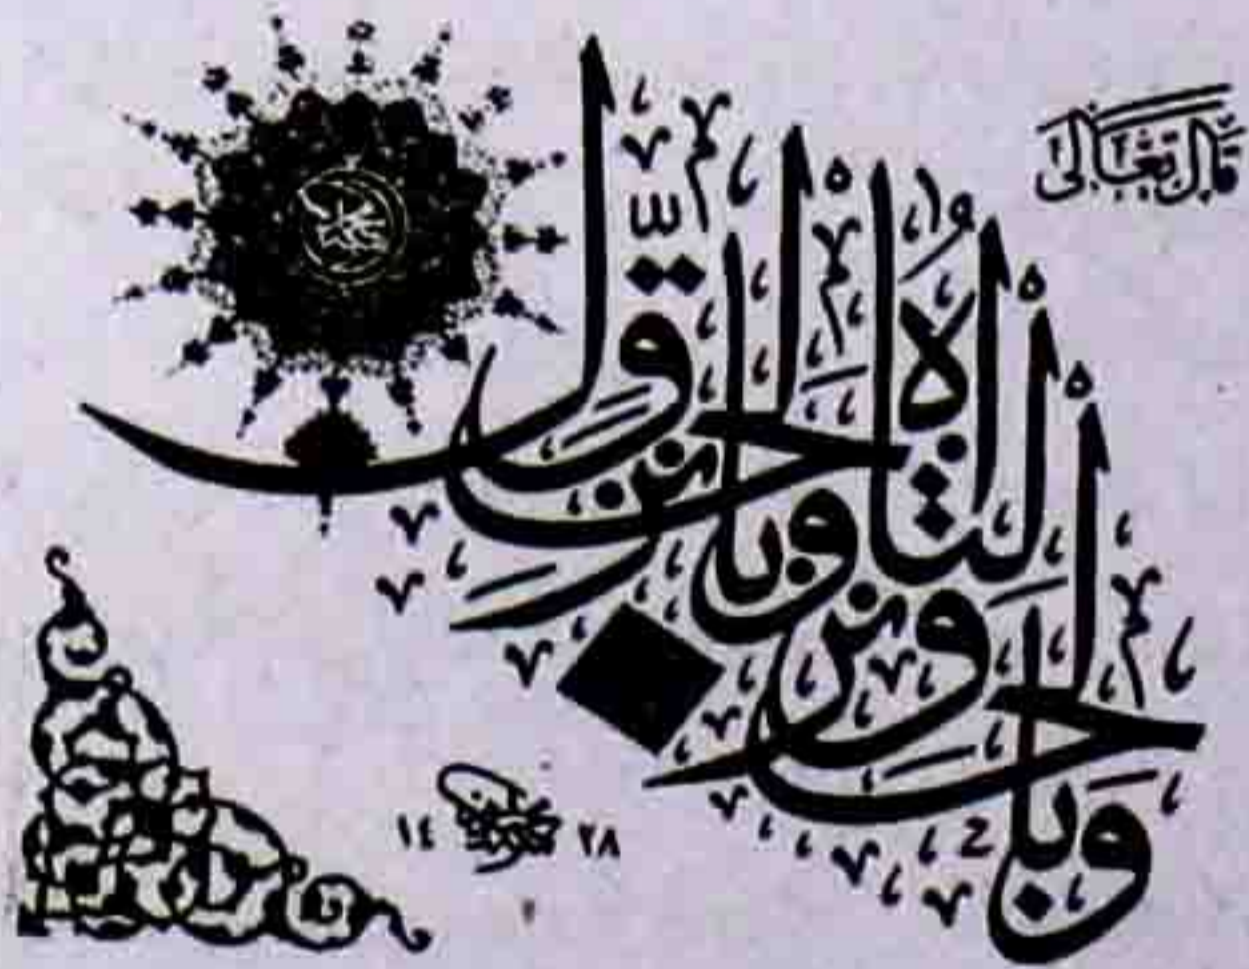 قَالَ تَعَالَىٰ
وَبِالْحَقِّ أَنْزَلْنَاهُ وَبِالْحَقِّ نَزَلَ
محمد
١٤٢٨